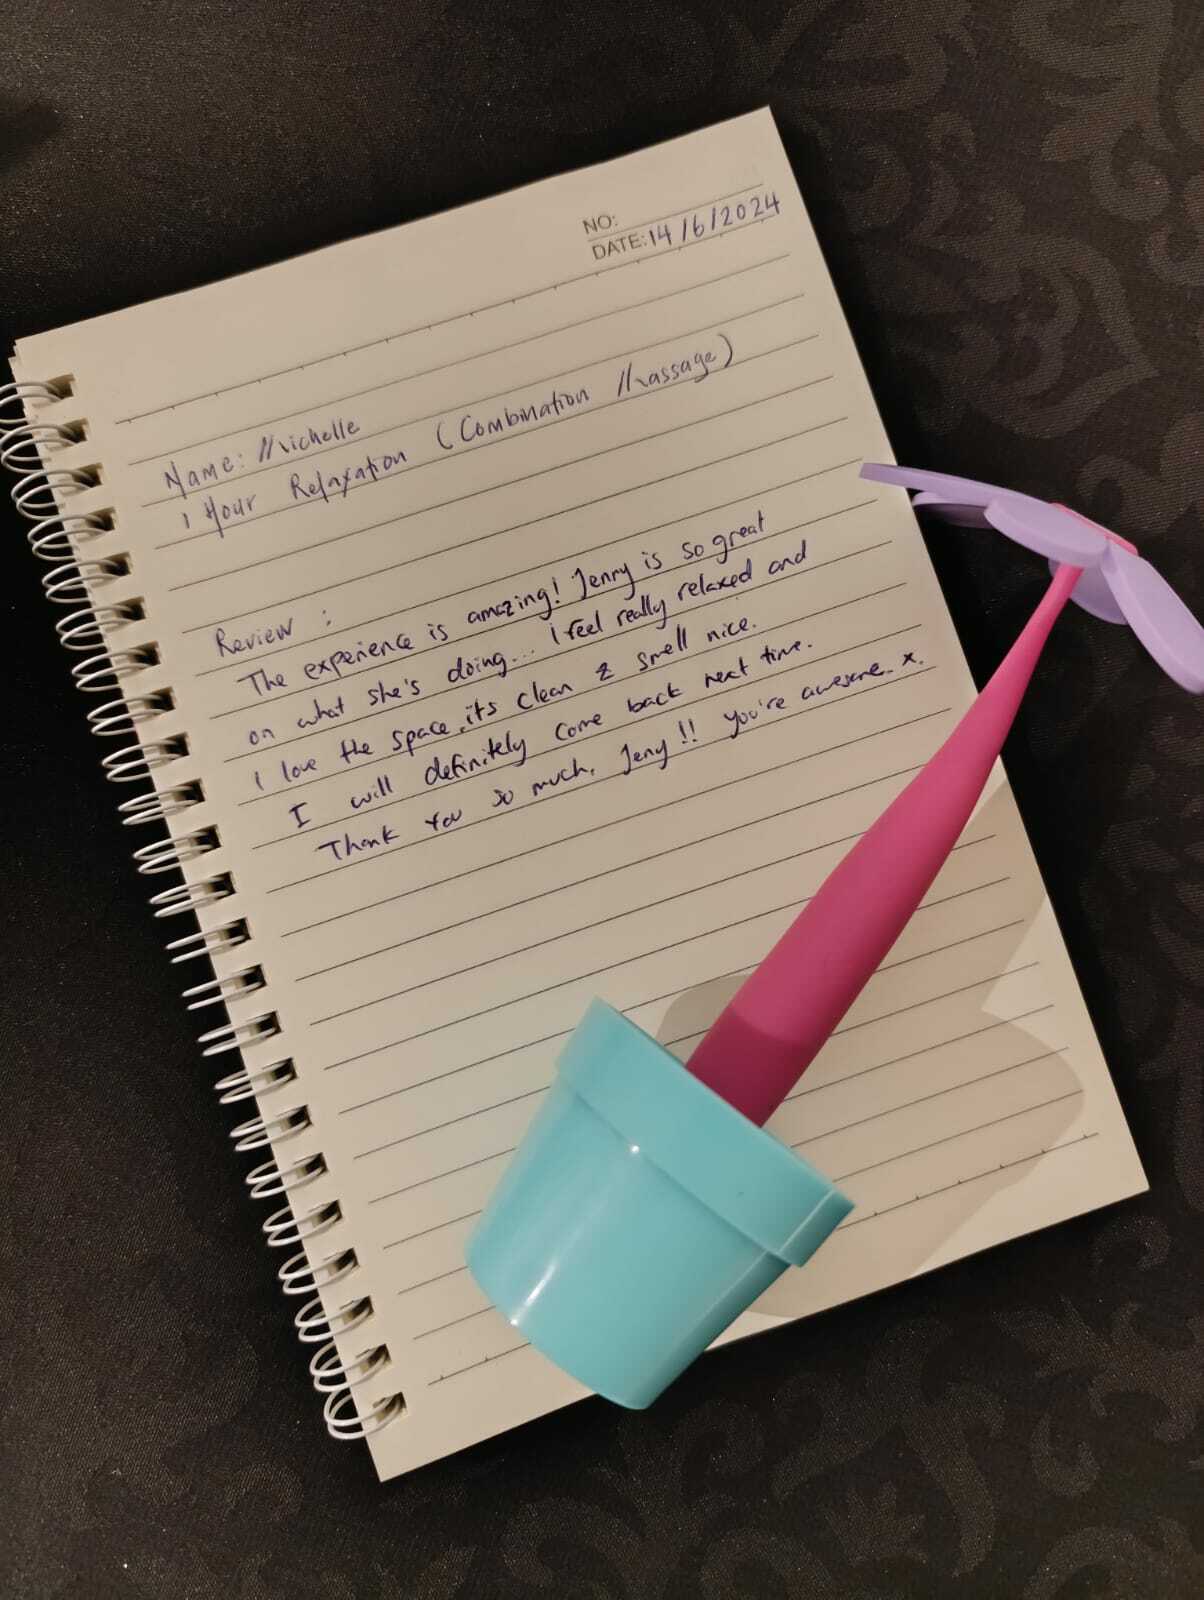 NO:
DATE: 14/6/2024
Name: Michelle
1 Hour Relaxation (Combination Massage)
Review :
The experience is amazing! Jenny is so great
on what she's doing... I feel really relaxed and
I love the space, its clean & smell nice.
I will definitely come back next time.
Thank You so much, Jeny!! You're awesome. x.